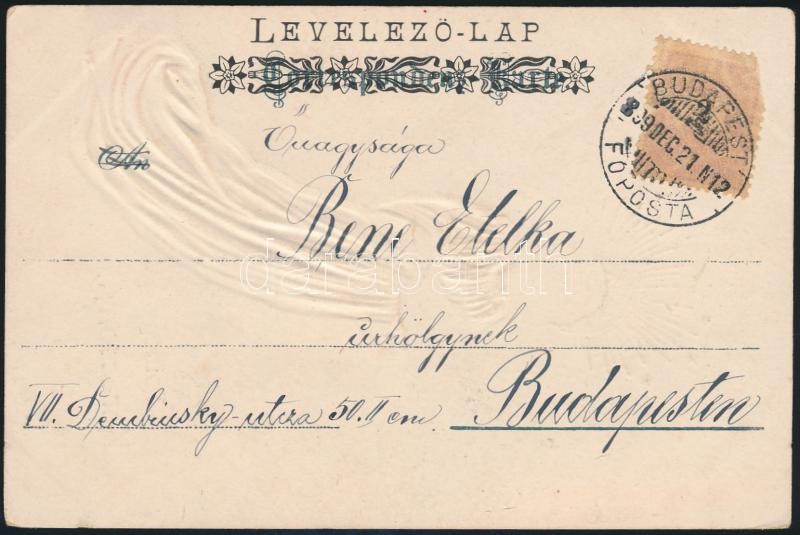 LEVELEZŐ-LAP
Correspondenz-Karte
Őnagysága
An
Bene Etelka
úrhölgynek
VII. Dembinsky-utcza 50. II em.
Budapesten
BUDAPEST
899 DEC. 21. N12
FŐPOSTA
darabanth